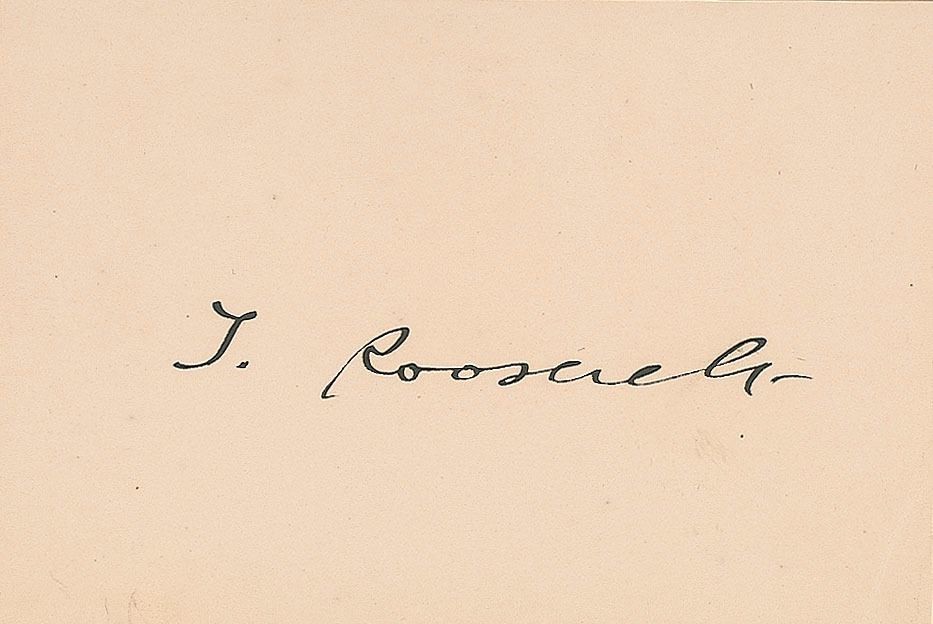 T. Roosevelt